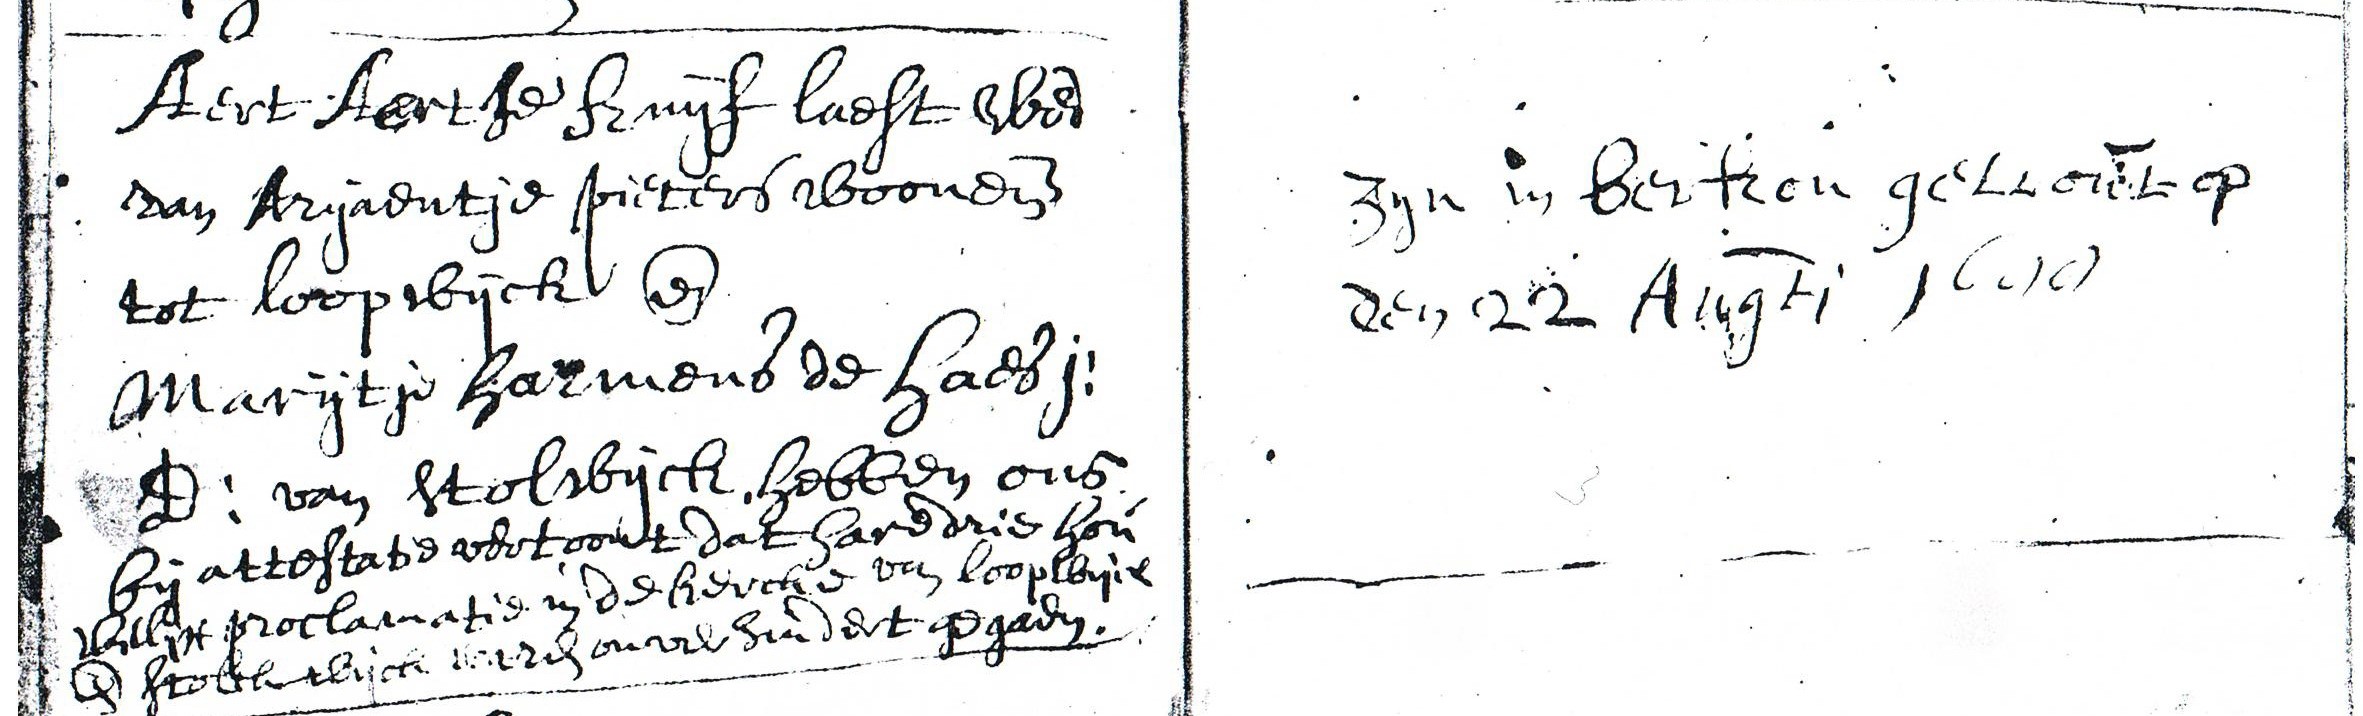 Aert Aertse Kruijf laest wedr
van Arijaentje pieters woonen
tot loopwijck en
Marijtje harmens de haes j:
D: van stolwijck hebben ons
bij attestatie vertoont dat hare drie hou
proclamatie in de kercke van loopwijck
en stolckwijck onverhindert gegaen.
zijn in getrout op
den 22 Augti